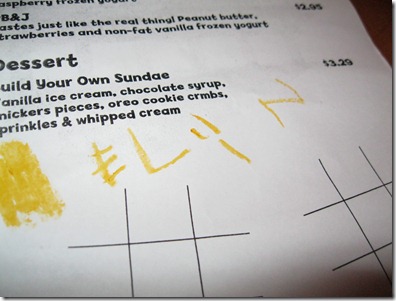 aspberry frozen yogurt
$2.95
B&J
astes just like the real thing! Peanut butter,
trawberries and non-fat vanilla frozen yogurt
Dessert
$3.29
uild Your Own Sundae
anilla ice cream, chocolate syrup,
nickers pieces, oreo cookie crmbs,
prinkles & whipped cream
ELyN